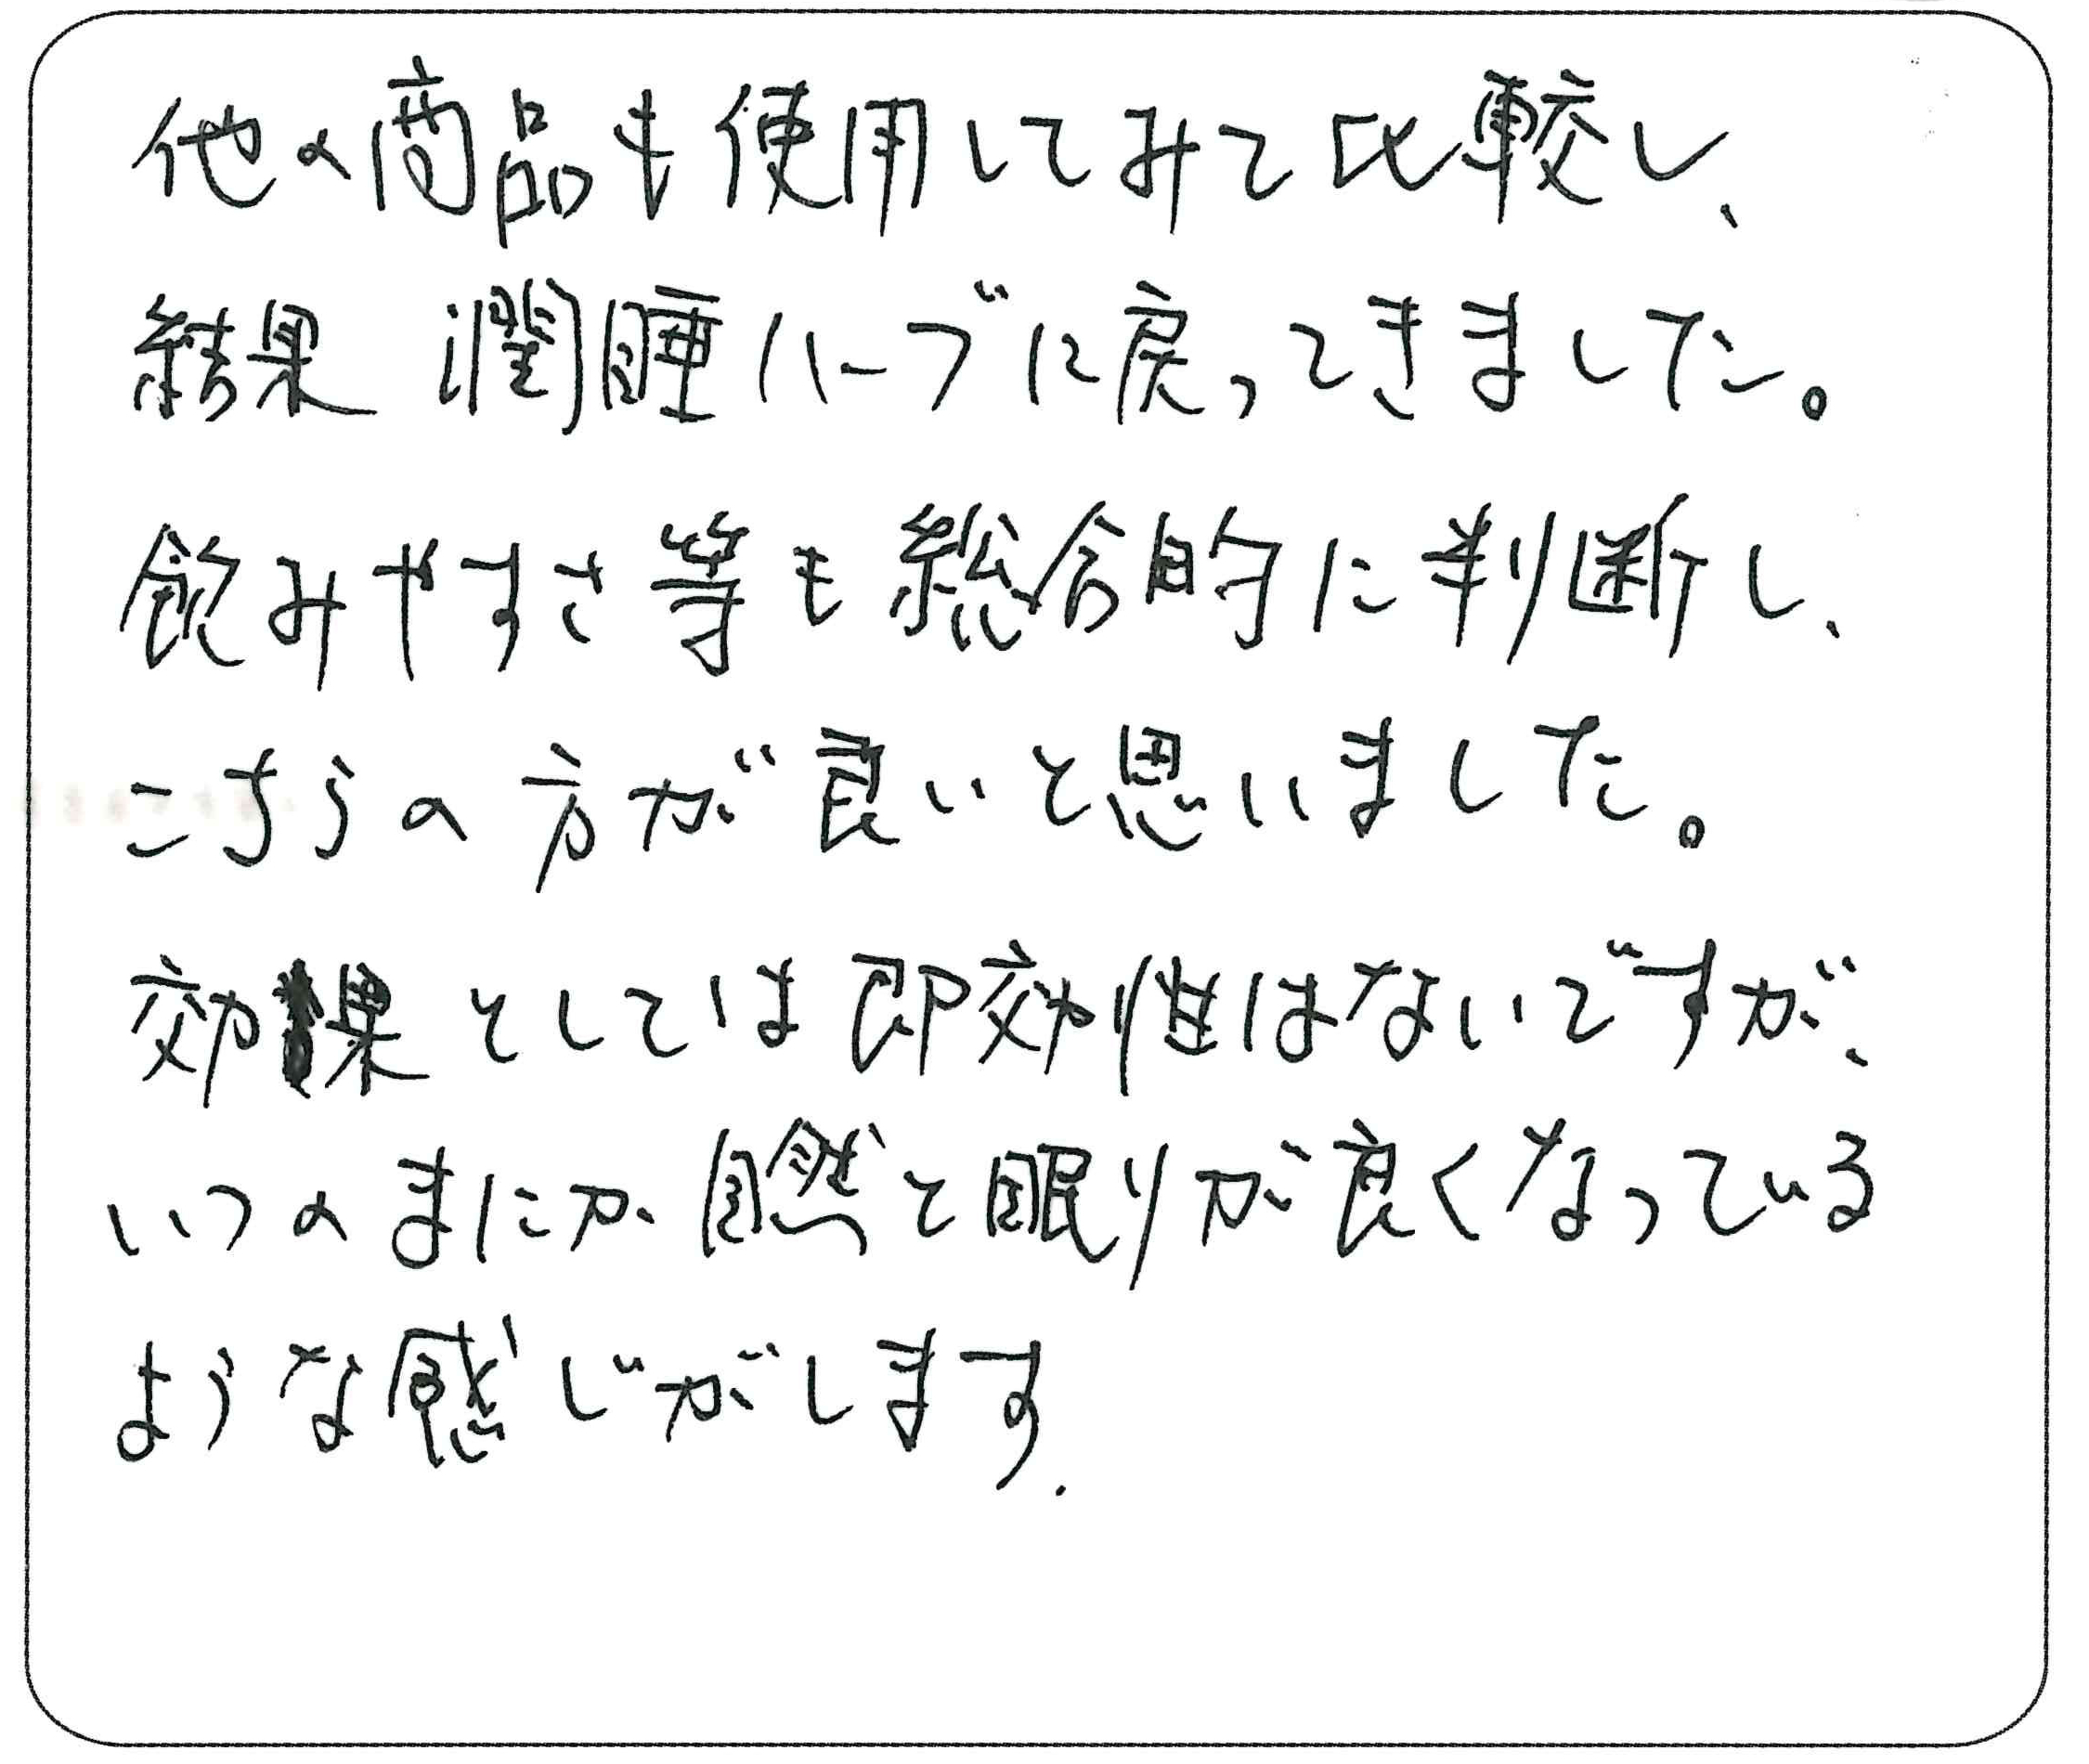 他の商品も使用してみて比較し、
結果 潤睡ハーブに戻ってきました。
飲みやすさ等も総合的に判断し、
こちらの方が良いと思いました。
効果としては即効性はないですが、
いつのまにか自然と眠りが良くなっている
ような感じがします.